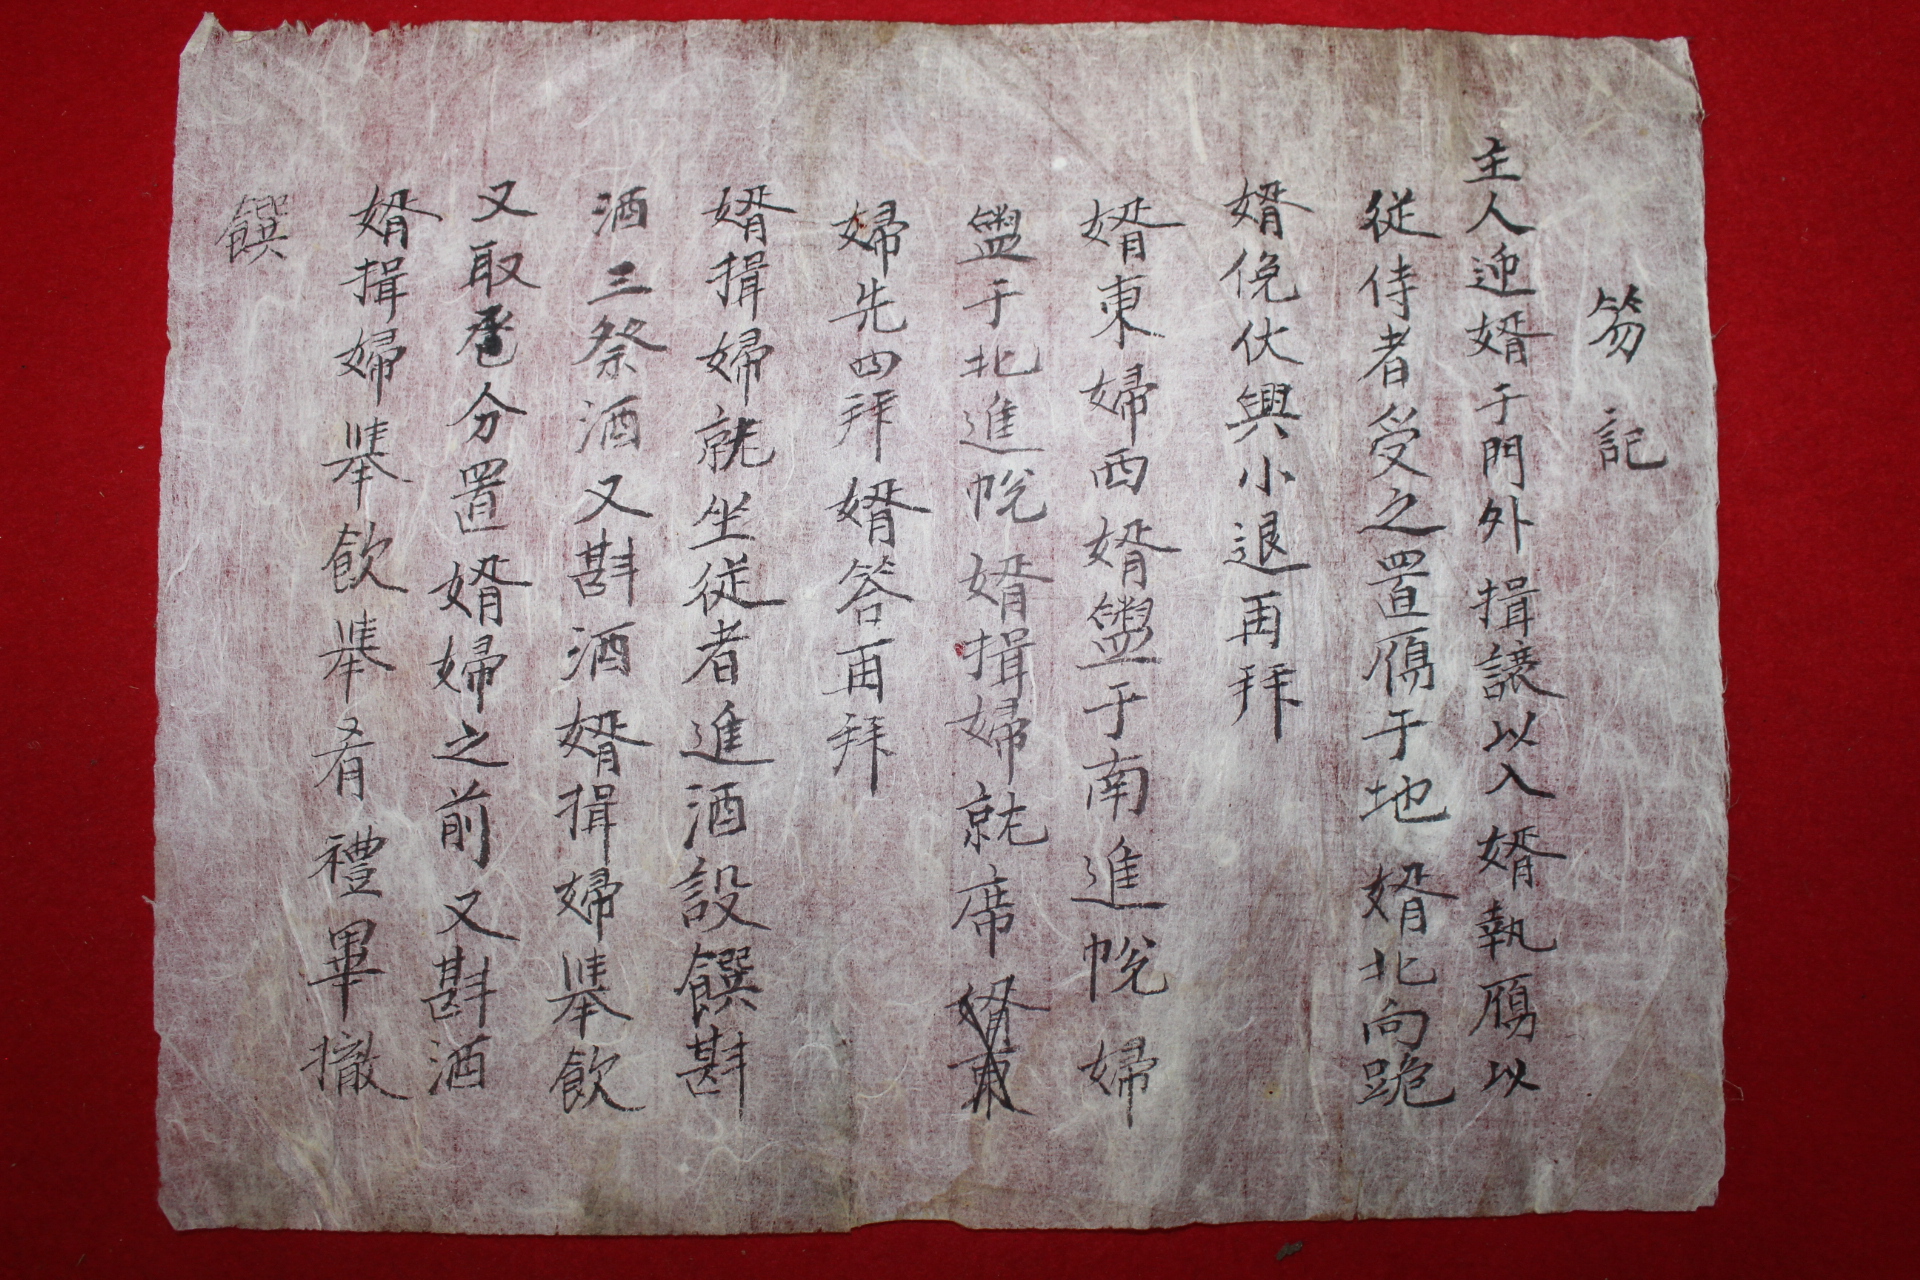 笏記
主人迎婿于門外揖讓以入婿執鴈以
從侍者受之置鴈于地婿北向跪
婿俛伏興小退再拜
婿東婦西婿盥于南進帨婦
盥于北進帨婿揖婦就席婿東
婦先四拜婿答再拜
婿揖婦就坐從者進酒設饌斟
酒三祭酒又斟酒婿揖婦舉飲
又取卺分置婿婦之前又斟酒
婿揖婦舉飲舉肴禮畢撤
饌